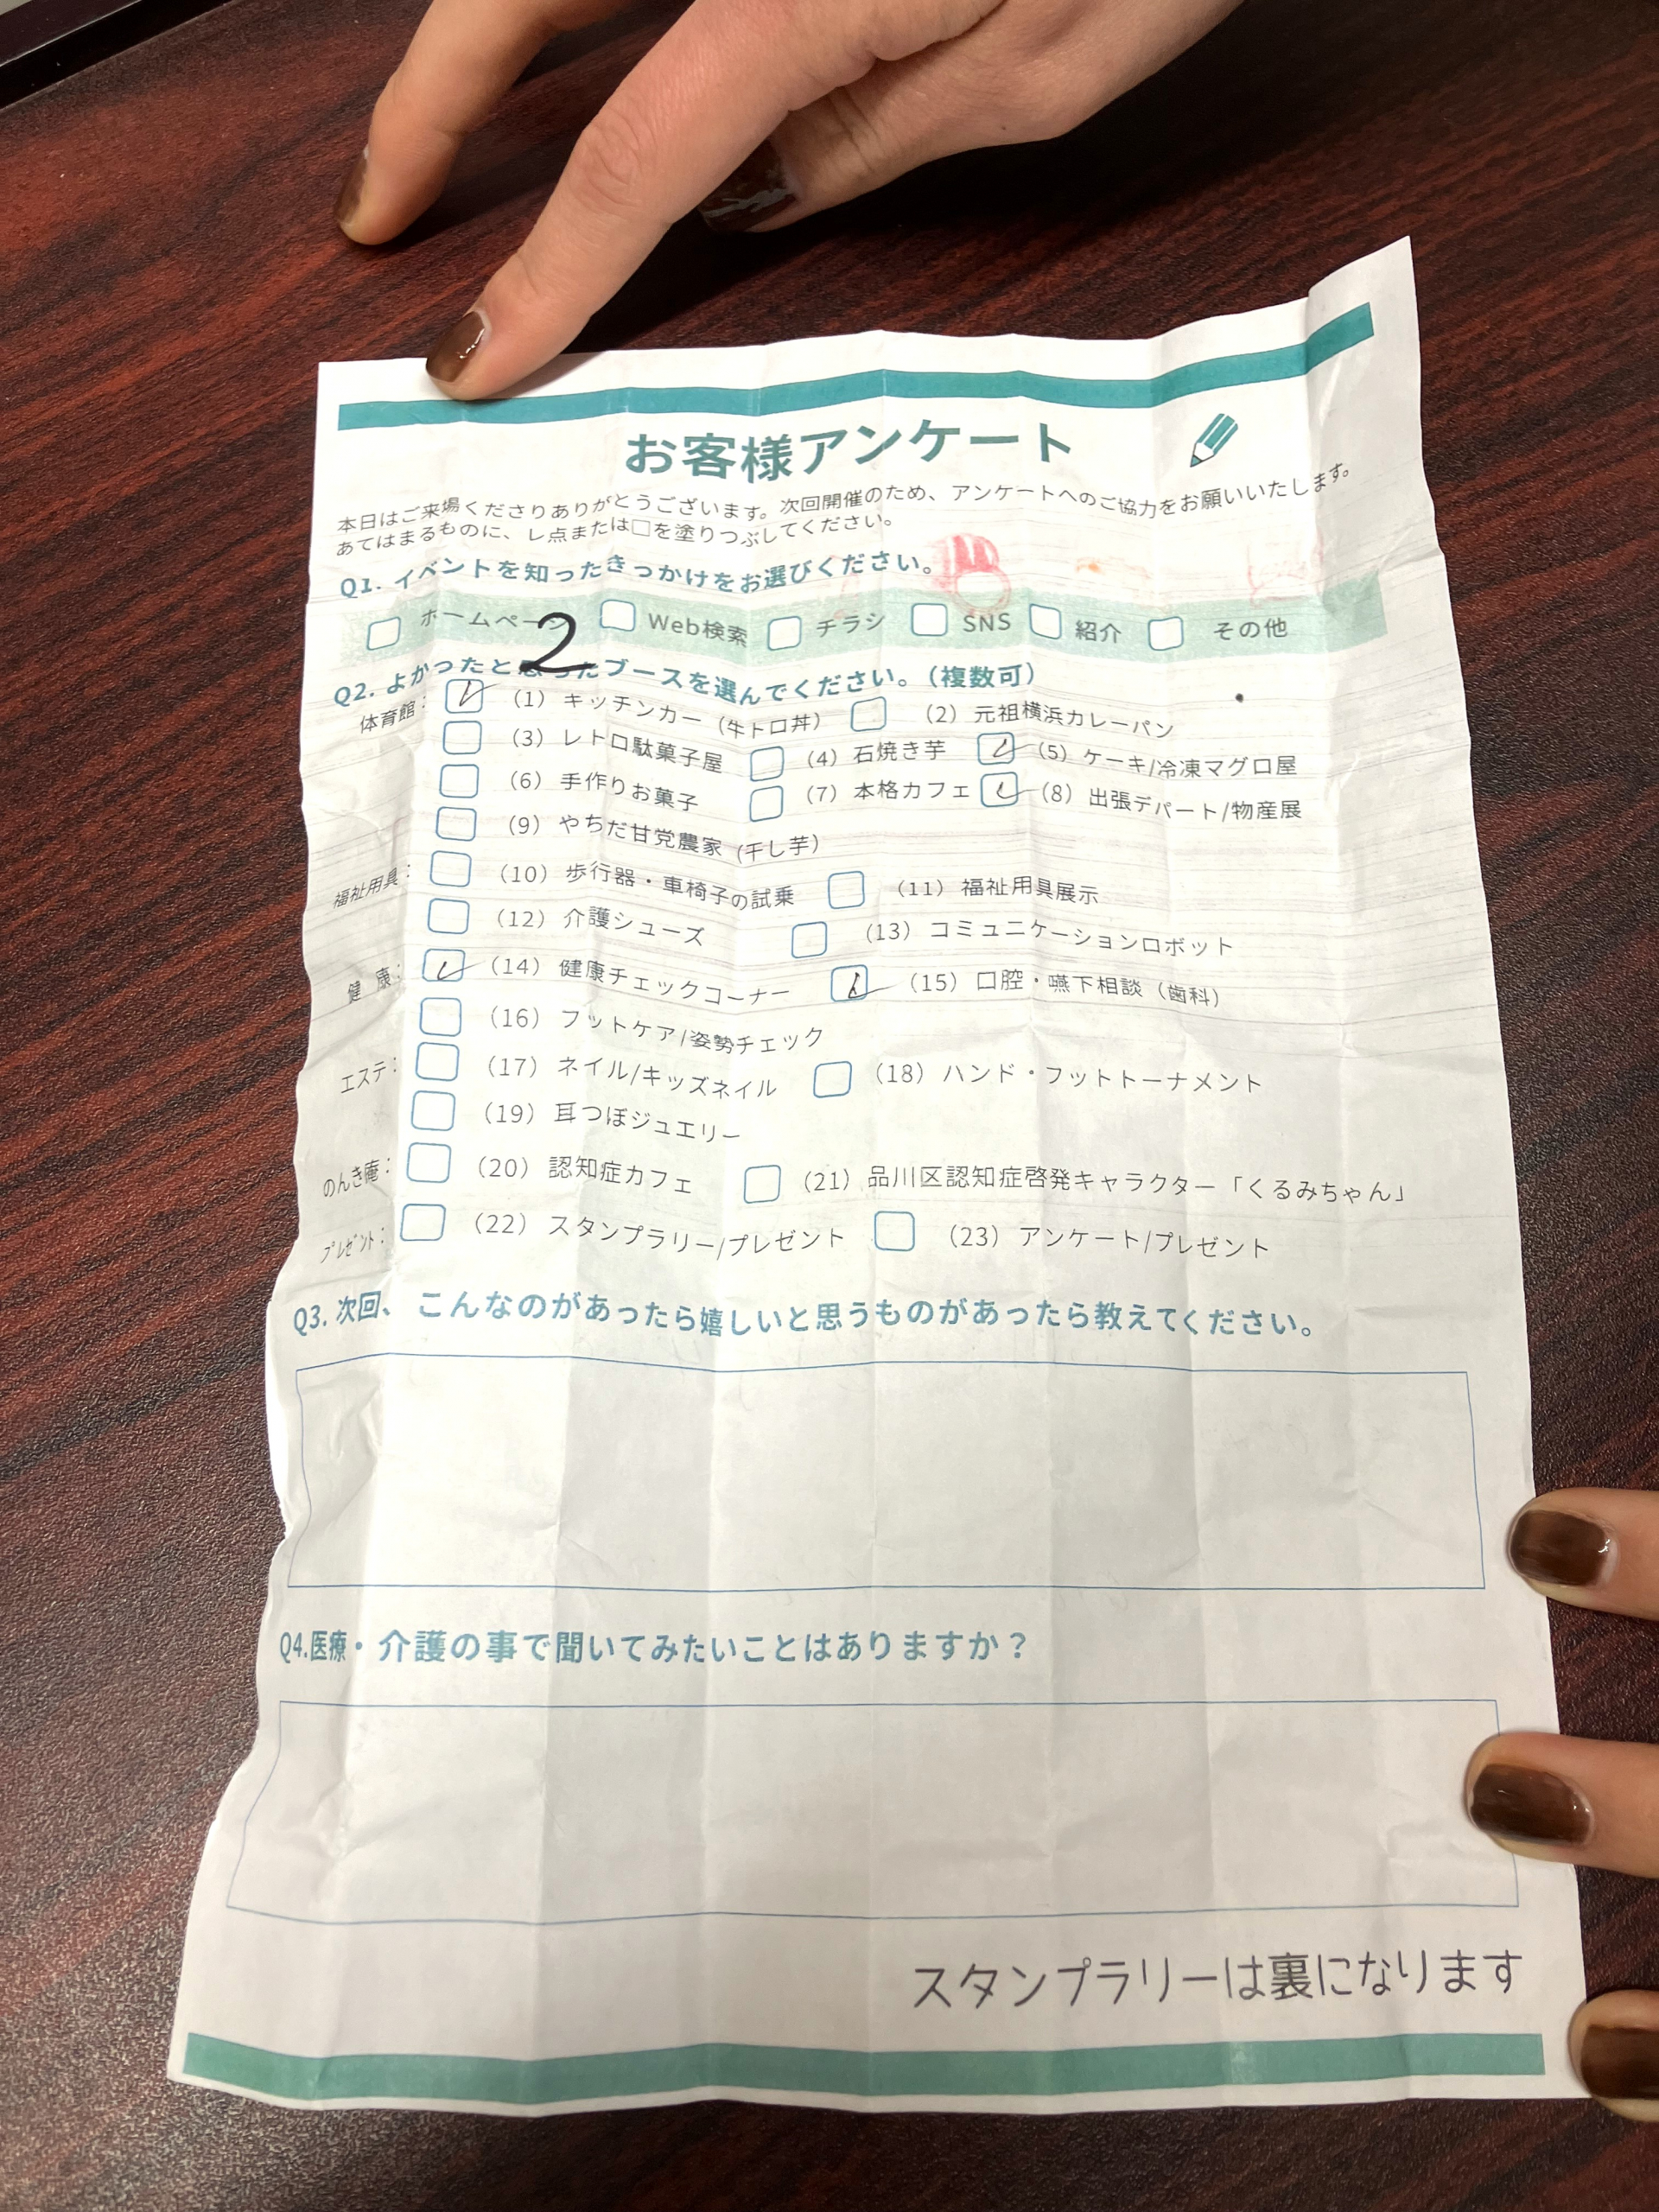 お客様アンケート
本日はご来場くださりありがとうございます。次回開催のため、アンケートへのご協力をお願いいたします。
あてはまるものに、レ点または□を塗りつぶしてください。
Q1. イベントを知ったきっかけをお選びください。
ホームページ Web検索 チラシ SNS 紹介 その他
2
Q2. よかったと思ったブースを選んでください。（複数可）
体育館： （1）キッチンカー（牛トロ丼） （2）元祖横浜カレーパン
（3）レトロ駄菓子屋 （4）石焼き芋 （5）ケーキ/冷凍マグロ屋
（6）手作りお菓子 （7）本格カフェ （8）出張デパート/物産展
（9）やちだ甘党農家（干し芋）
福祉用具： （10）歩行器・車椅子の試乗 （11）福祉用具展示
（12）介護シューズ （13）コミュニケーションロボット
健 康： （14）健康チェックコーナー （15）口腔・嚥下相談（歯科）
（16）フットケア/姿勢チェック
エステ： （17）ネイル/キッズネイル （18）ハンド・フットトーナメント
（19）耳つぼジュエリー
のんき庵： （20）認知症カフェ （21）品川区認知症啓発キャラクター「くるみちゃん」
プレゼント： （22）スタンプラリー/プレゼント （23）アンケート/プレゼント
Q3. 次回、こんなのがあったら嬉しいと思うものがあったら教えてください。
Q4.医療・介護の事で聞いてみたいことはありますか？
スタンプラリーは裏になります